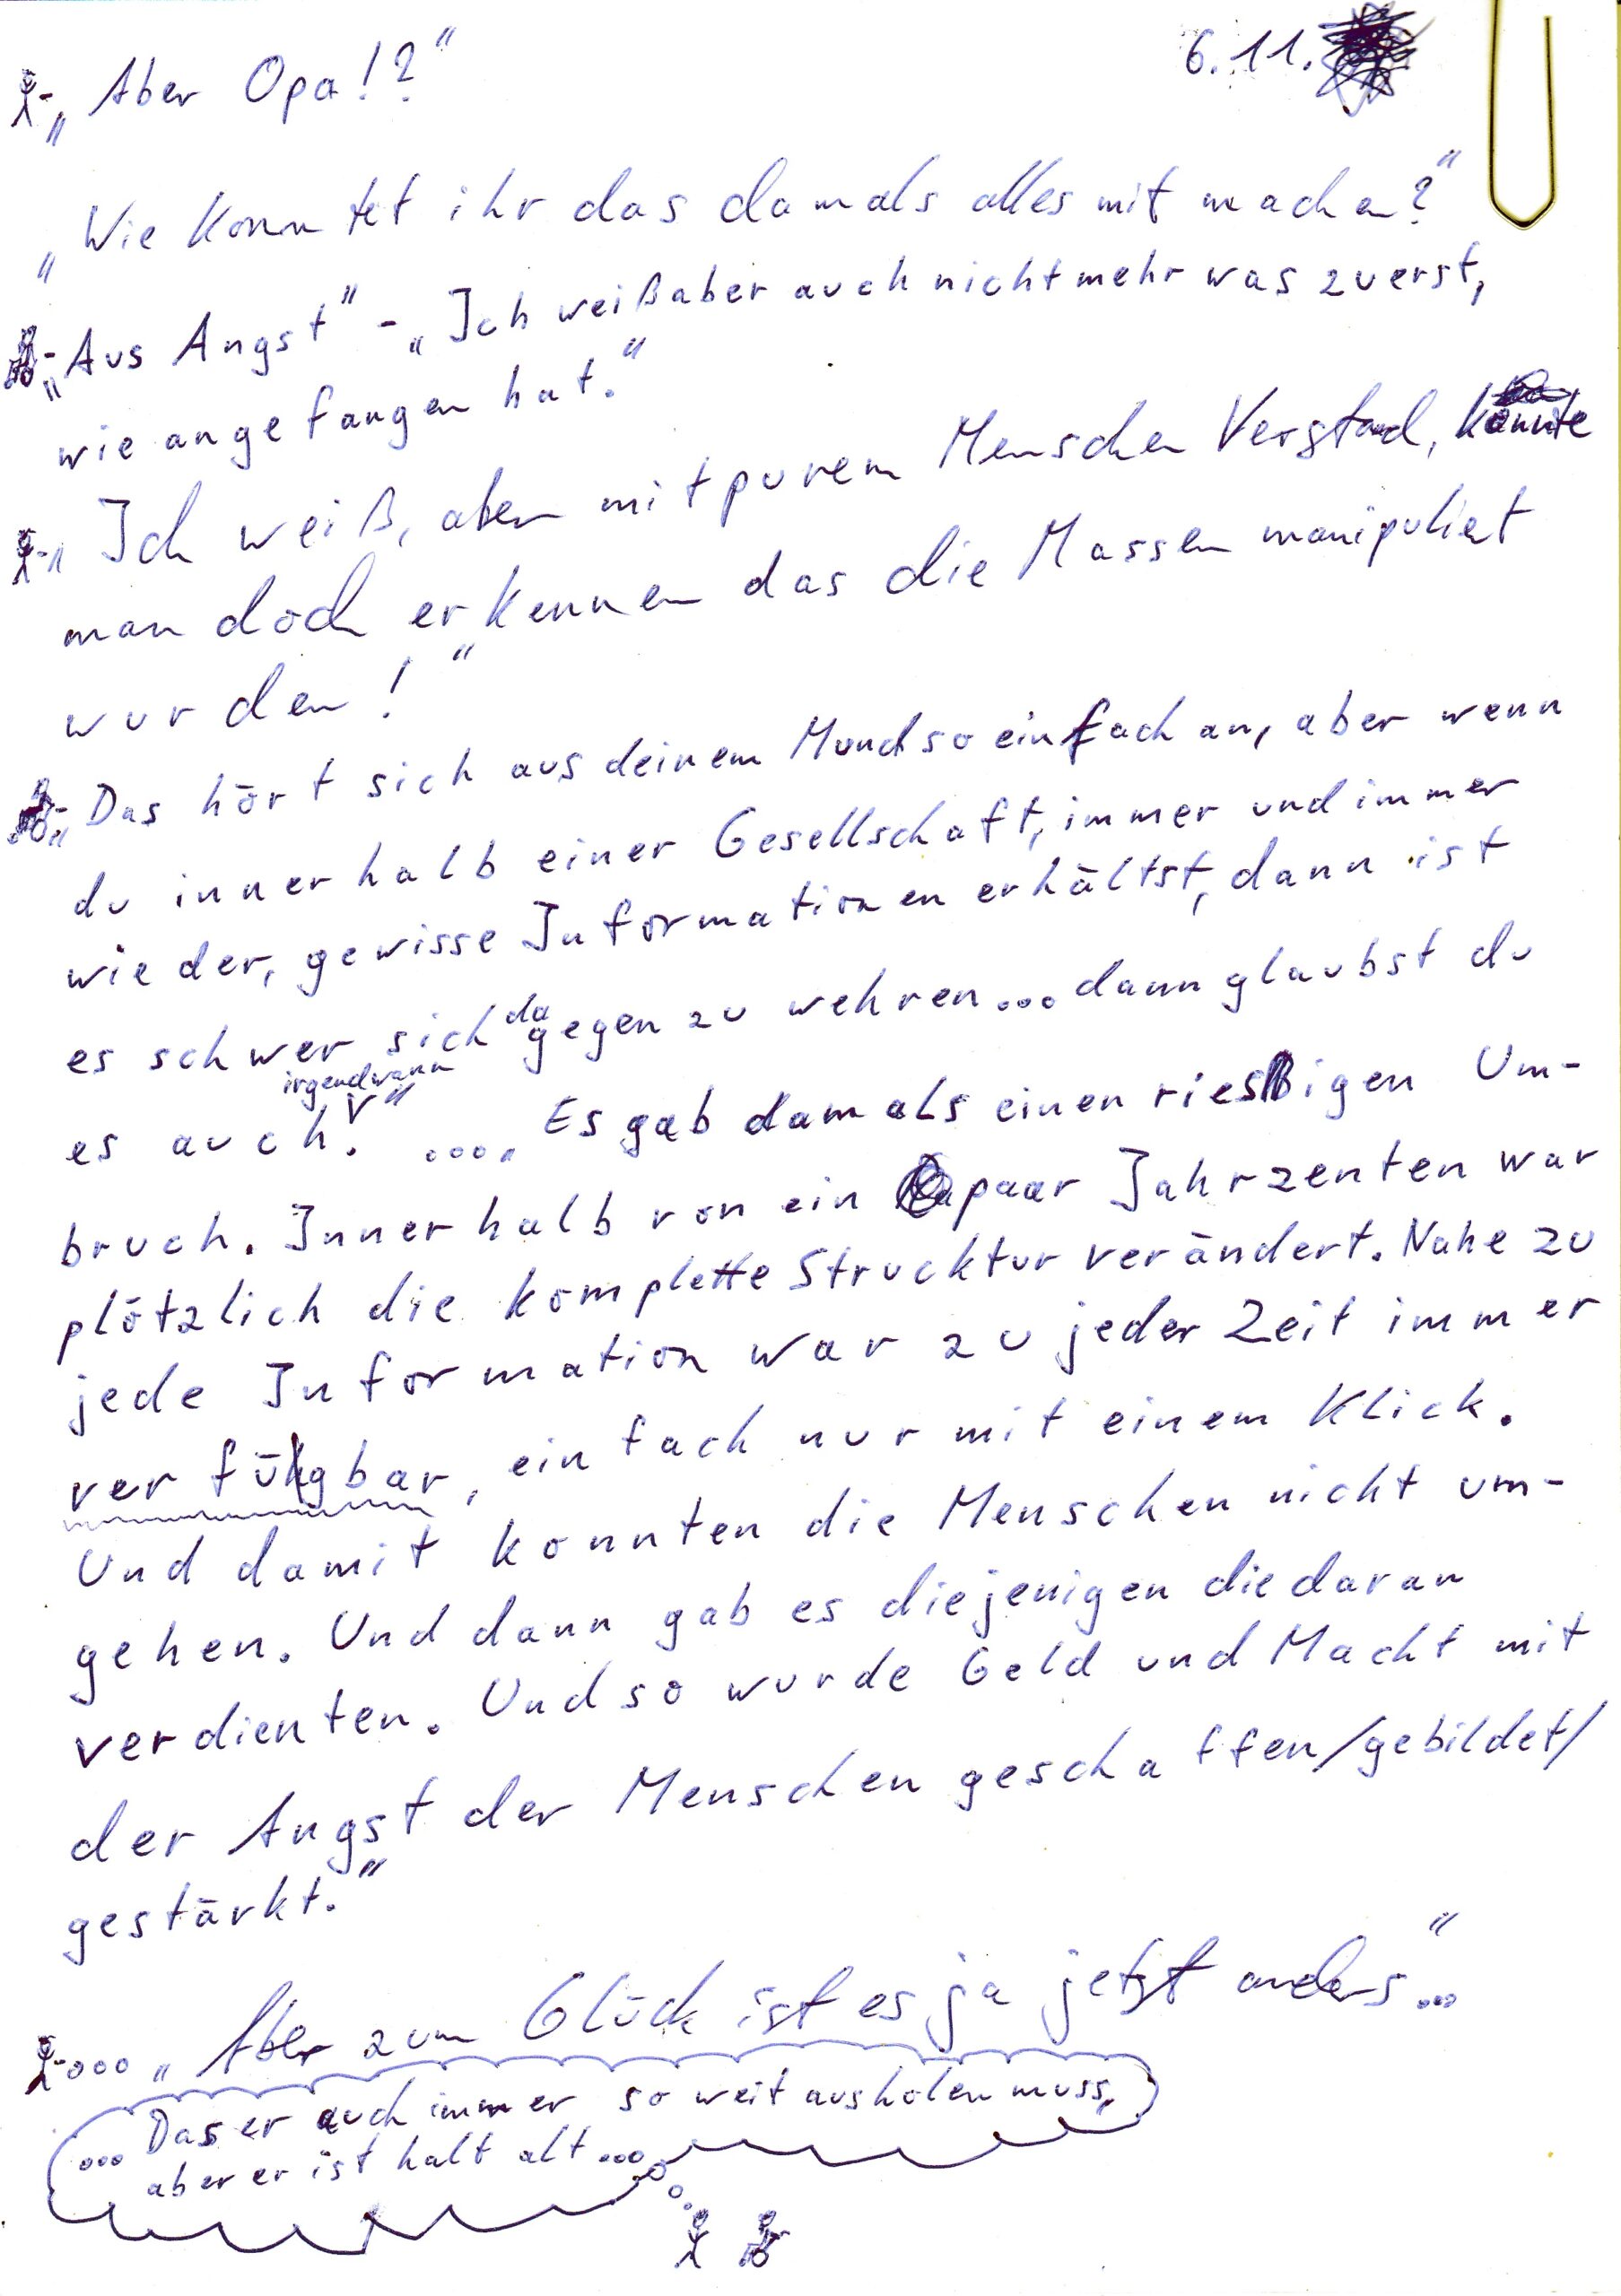 - „Aber Opa!?“ 6.11.
„Wie konntet ihr das damals alles mit machen?“
- „Aus Angst“ - „Ich weiß aber auch nicht mehr was zuerst,
wie angefangen hat.“
- „Ich weiß, aber mit purem Menschen Verstand, könnte
man doch erkennen das die Massen manipuliert
wurden!“
- „Das hört sich aus deinem Mund so einfach an, aber wenn
du innerhalb einer Gesellschaft, immer und immer
wieder, gewisse Informationen erhältst, dann ist
es schwer sich dagegen zu wehren... dann glaubst du
es auch irgendwann.“ ....„Es gab damals einen riesigen Um-
bruch. Innerhalb von ein paar Jahrzenten war
plötzlich die komplette Strucktur verändert. Nahe zu
jede Information war zu jeder Zeit immer
verfügbar, einfach nur mit einem Klick.
Und damit konnten die Menschen nicht um-
gehen. Und dann gab es diejenigen die daran
verdienten. Und so wurde Geld und Macht mit
der Angst der Menschen geschaffen/gebildet/
gestärkt.“
-... „Aber zum Glück ist es ja jetzt anders...“
... Das er auch immer so weit ausholen muss,
aber er ist halt alt...